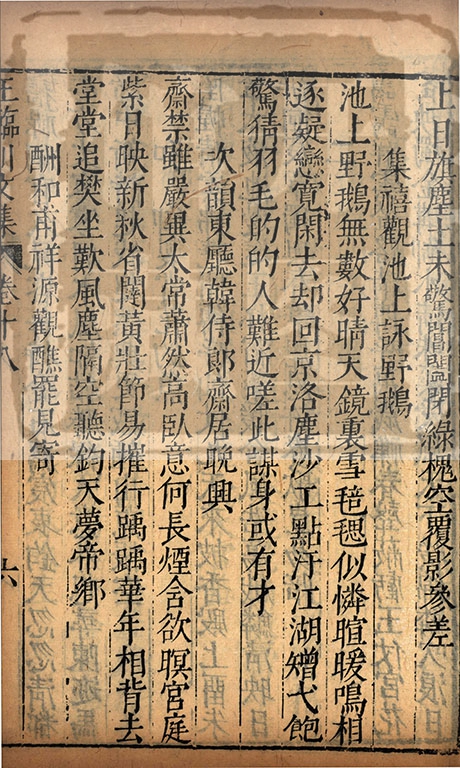 上日旗塵土未驚閶闔閉綠槐空覆影參差
集禧觀池上詠野鵝
池上野鵝無數好晴天鏡裏雪毰毸似憐暄暖鳴相
逐疑戀寬閑去却回京洛塵沙工點汙江湖矰弋飽
驚猜羽毛的的人難近嗟此謀身或有才
次韻東廳韓侍郎齋居晚興
齋禁雖嚴異太常蕭然高臥意何長煙含欲暝官庭
紫日映新秋省闥黃壯節易摧行踽踽華年相背去
堂堂追樊坐歎風塵隔空聽鈞天夢帝鄉
酬和甫祥源觀醮罷見寄
王臨川文集 卷十八 六